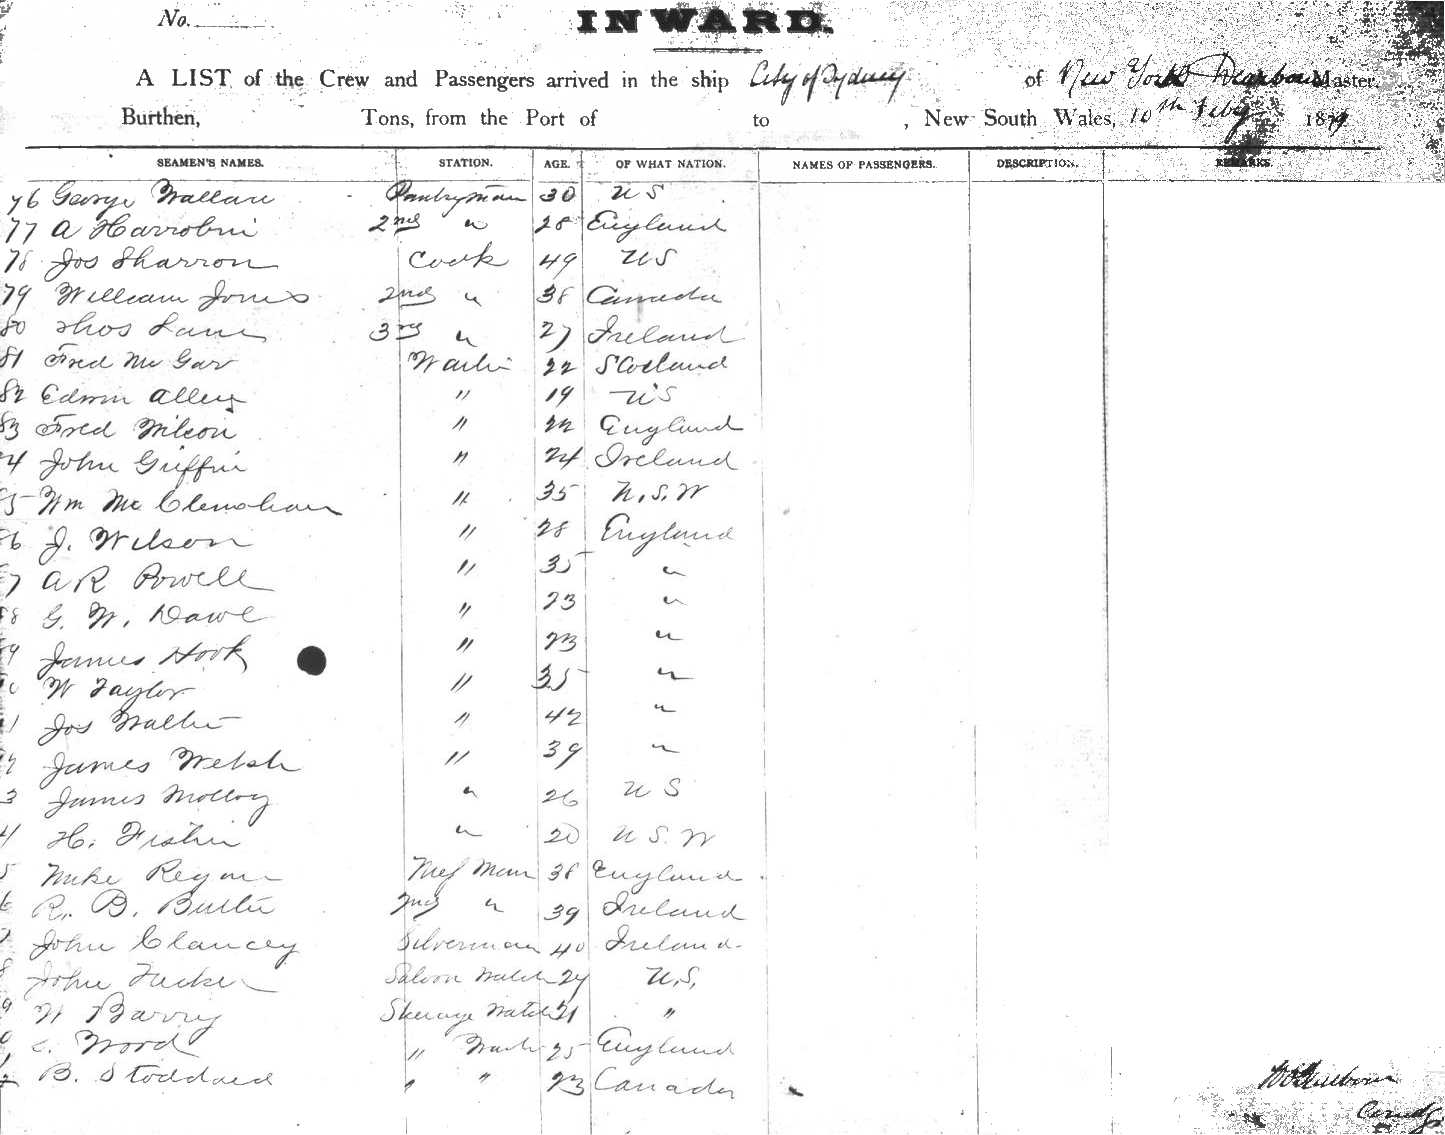 No.
INWARD.
A LIST of the Crew and Passengers arrived in the ship City of Sydney of New York Dearborn Master,
Burthen, Tons, from the Port of to , New South Wales, 10th Feby 1879
SEAMEN'S NAMES. STATION. AGE. OF WHAT NATION. NAMES OF PASSENGERS. DESCRIPTION. REMARKS.
76 George Wallace Pantryman 30 US
77 A Harrobin 2nd " 28 England
78 Jos Sharron Cook 49 US
79 William Jones 2nd " 38 Canada
80 Thos Lane 3rd " 27 Ireland
81 Fred Mc Gar Waiter 22 Scotland
82 Edwin Alley " 19 US
83 Fred Wilson " 22 England
4 John Griffin " 24 Ireland
5 Wm Mc Clenahan " 35 N.S.W
6 J. Wilson " 28 England
7 A R Powell " 35 "
8 G. W. Dawe " 23 "
9 James Hook " 23 "
0 W Taylor " 35 "
1 Jos Walter " 42 "
2 James Welsh " 39 "
3 James Molloy " 26 US
4 H. Fisher " 20 N S. W
5 Mike Regan Mess Man 38 England
6 R. B. Butler 2nd " 39 Ireland
7 John Clancey Silverman 40 Ireland
8 John Tucker Saloon Watch 24 U.S.
9 W Barry Steerage Watch 21 "
0 Wood " 25 England
B. Stoddard " " 23 Canada